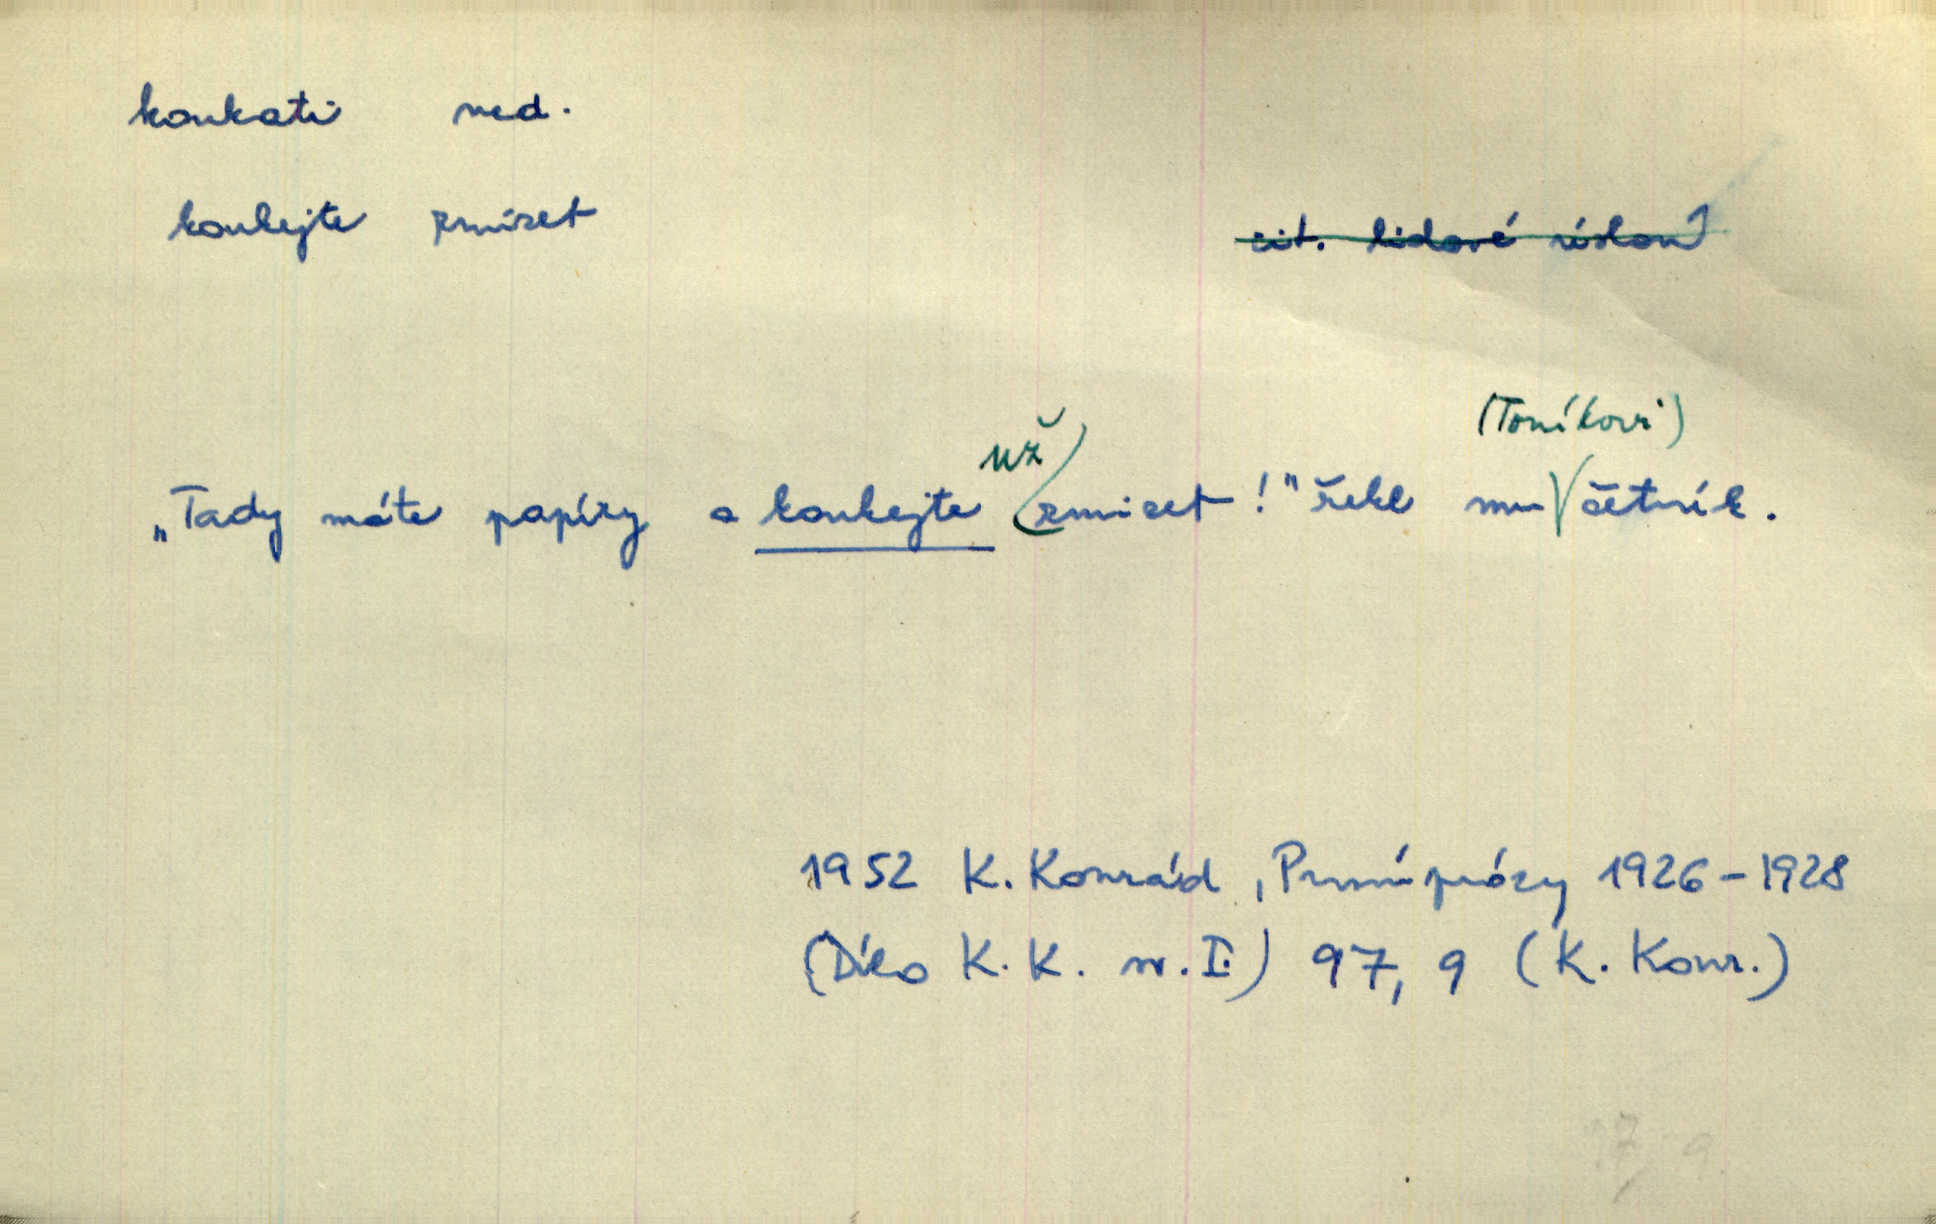 koukati ned.
koukejte zmizet
cit. lidové úsloví
(Toníkovi)
už
„Tady máte papíry a koukejte zmizet!" řekl mu četník.
1952 K. Konrád, První prózy 1926-1928
(Dílo K. K. sv. I.) 97, 9 (K. Konr.)
97, 9.